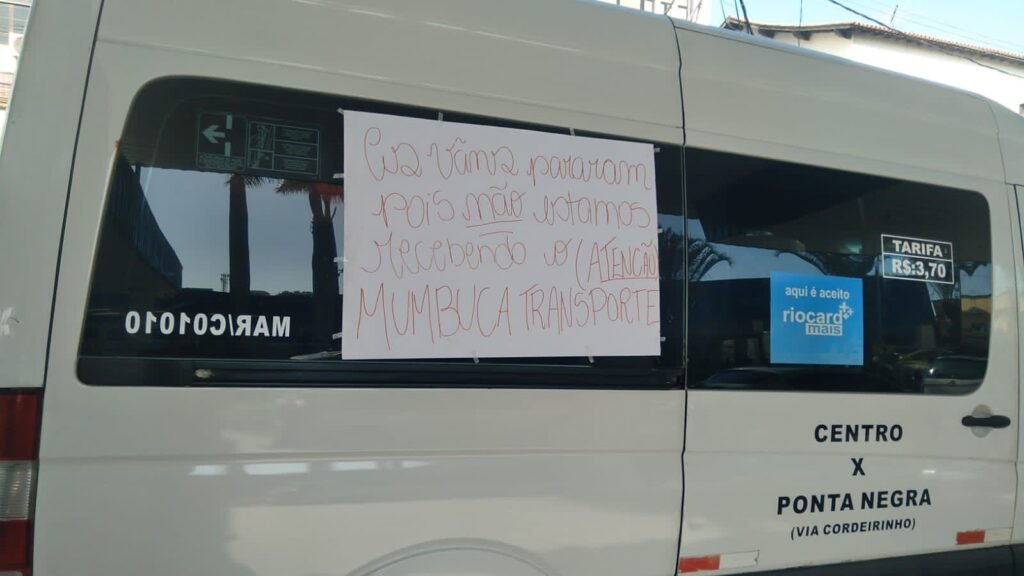 As vâms pararam
pois não estamos
recebendo o (ATENÇÃO
MUMBUCA TRANSPORTE
MAR/C01010
TARIFA
R$:3,70
aqui é aceito
riocard
mais
CENTRO
X
PONTA NEGRA
(VIA CORDEIRINHO)